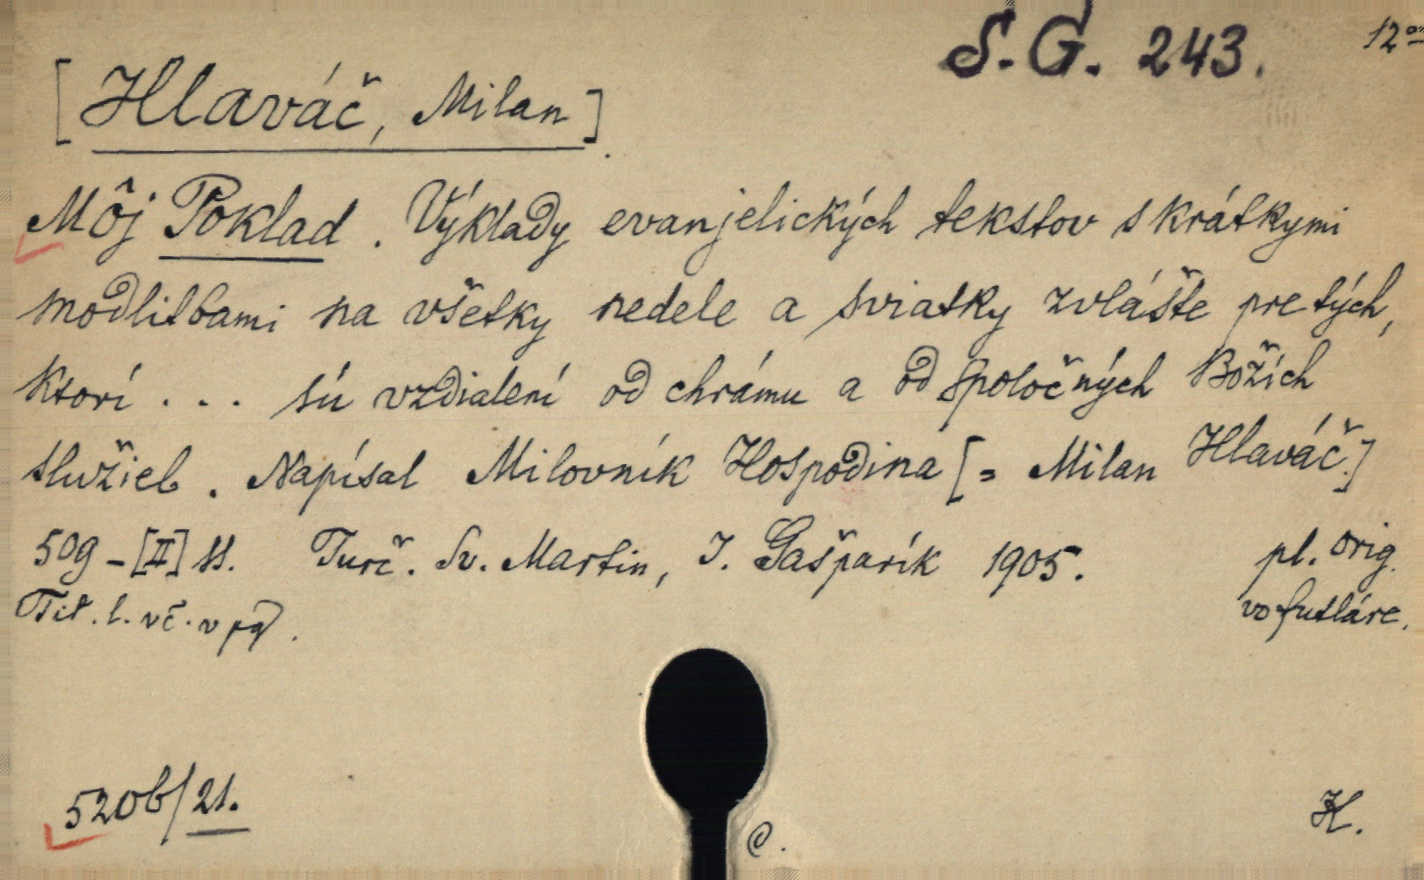 S. G. 243. 12°
[Hlaváč, Milan].
Môj Poklad. Výklady evanjelických tekstov s krátkymi
modlitbami na všetky nedele a sviatky zvlášte pre tých,
ktorí ... sú vzdialení od chrámu a od spoločných Božích
služieb. Napísal Milovník Hospodina [= Milan Hlaváč.]
509-[II] ss. Turč. Sv. Martin, I. Gašparík 1905. pl. orig.
Tit. l. vč. v pg. vo futláre.
5206/21.
K.